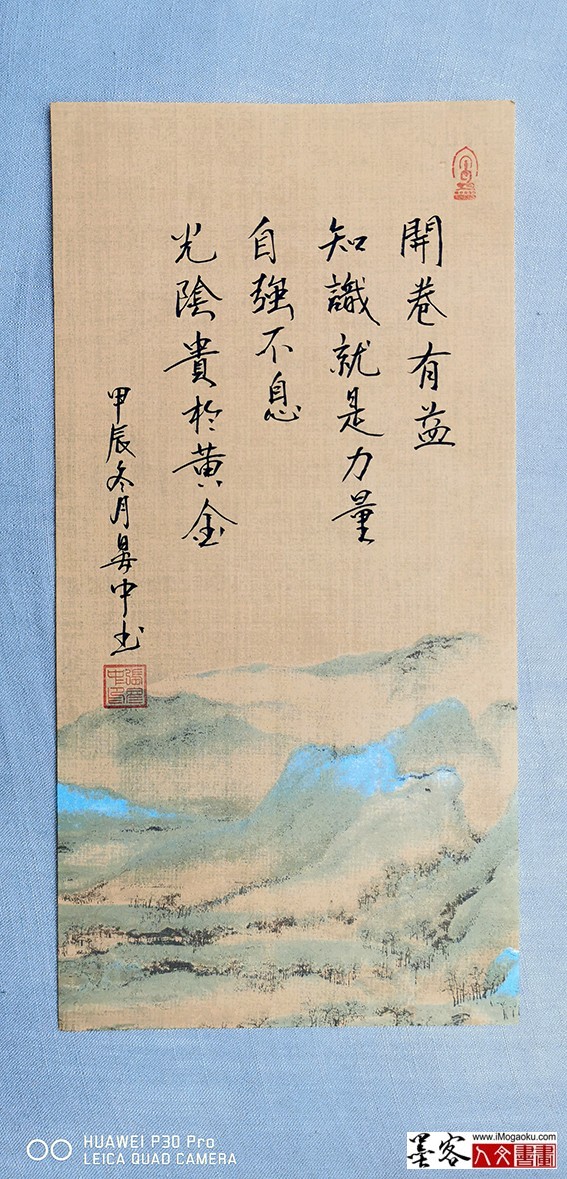 開卷有益
知識就是力量
自強不息
光陰貴於黃金
甲辰冬月昊中书
HUAWEI P30 Pro
LEICA QUAD CAMERA
墨客
www.iMogaoku.com
人文書畫